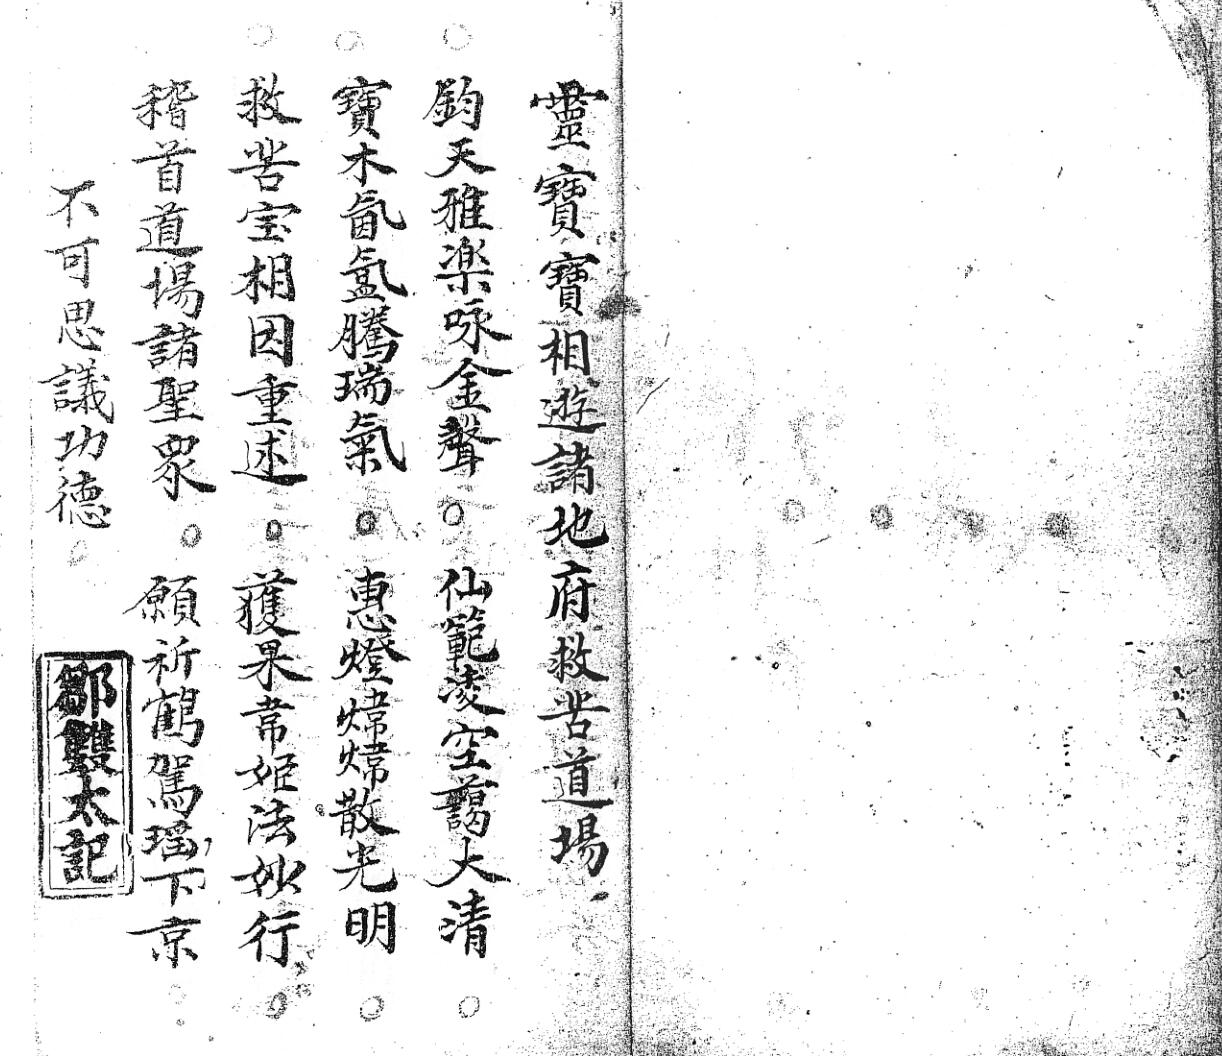 靈寶寶相遊諸地府救苦道場
鈞天雅楽咏金聲○仙範淩空藹大清○
寶木氤氳騰瑞氣○惠燈煒煒散光明○
救苦宝相因重述○獲果常姫法妙行○
稽首道場諸聖衆○願祈鶴駕瑶下京○
不可思議功德○
鄒雙太記